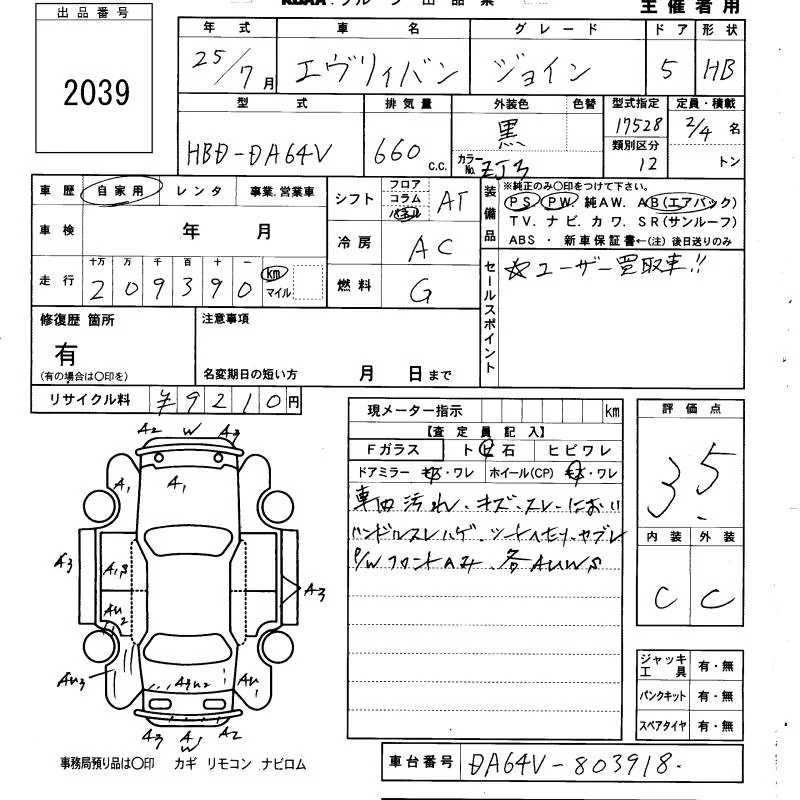 出品番号
2039
主催者用
年式 車名 グレード ドア 形状
25/7月 エヴリィバン ジョイン 5 HB
型式 排気量 外装色 色替 型式指定 定員・積載
HBD-DA64V 660 C.C. 黒 カラーNo. ZJ3 17528 2/4 名
類別区分
12 トン
車歴 自家用 レンタ 事業.営業車
車検 年 月
走行 十万 万 千 百 十 一
209390 km マイル
シフト フロア コラム パネル AT
冷房 AC
燃料 G
装備品
※純正のみ○印をつけて下さい。
PS PW 純AW. AB(エアバック)
TV. ナビ. カワ. SR(サンルーフ)
ABS ・ 新車保証書←(注) 後日送りのみ
セールスポイント
☆ユーザー買取車!!
修復歴 箇所
有
(有の場合は○印を)
注意事項
名変期日の短い方 月 日まで
リサイクル料 ¥9210円
現メーター指示 km
【査定員記入】
Fガラス トビ石 ヒビワレ
ドアミラー キズ・ワレ ホイール(CP) キズ・ワレ
車内汚れ.キズ.スレ.におい
ハンドルスレハゲ.シートヘタリ.ヤブレ
P/W フロントのみ.各AUWS
評価点
3.5
内装 外装
C C
ジャッキ工具 有・無
パンクキット 有・無
スペアタイヤ 有・無
A2 W A3
A1 A1
A3 A1S A3
AU2
AU3 A3U2 AU1
A3 A1 W A2
事務局預り品は○印 カギ リモコン ナビロム
車台番号 DA64V-803918.